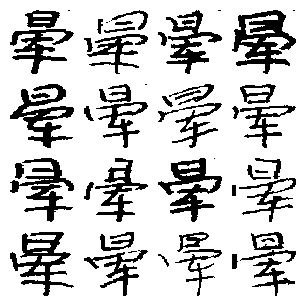 晕晕晕晕
晕晕晕晕
晕晕晕晕
晕晕晕晕